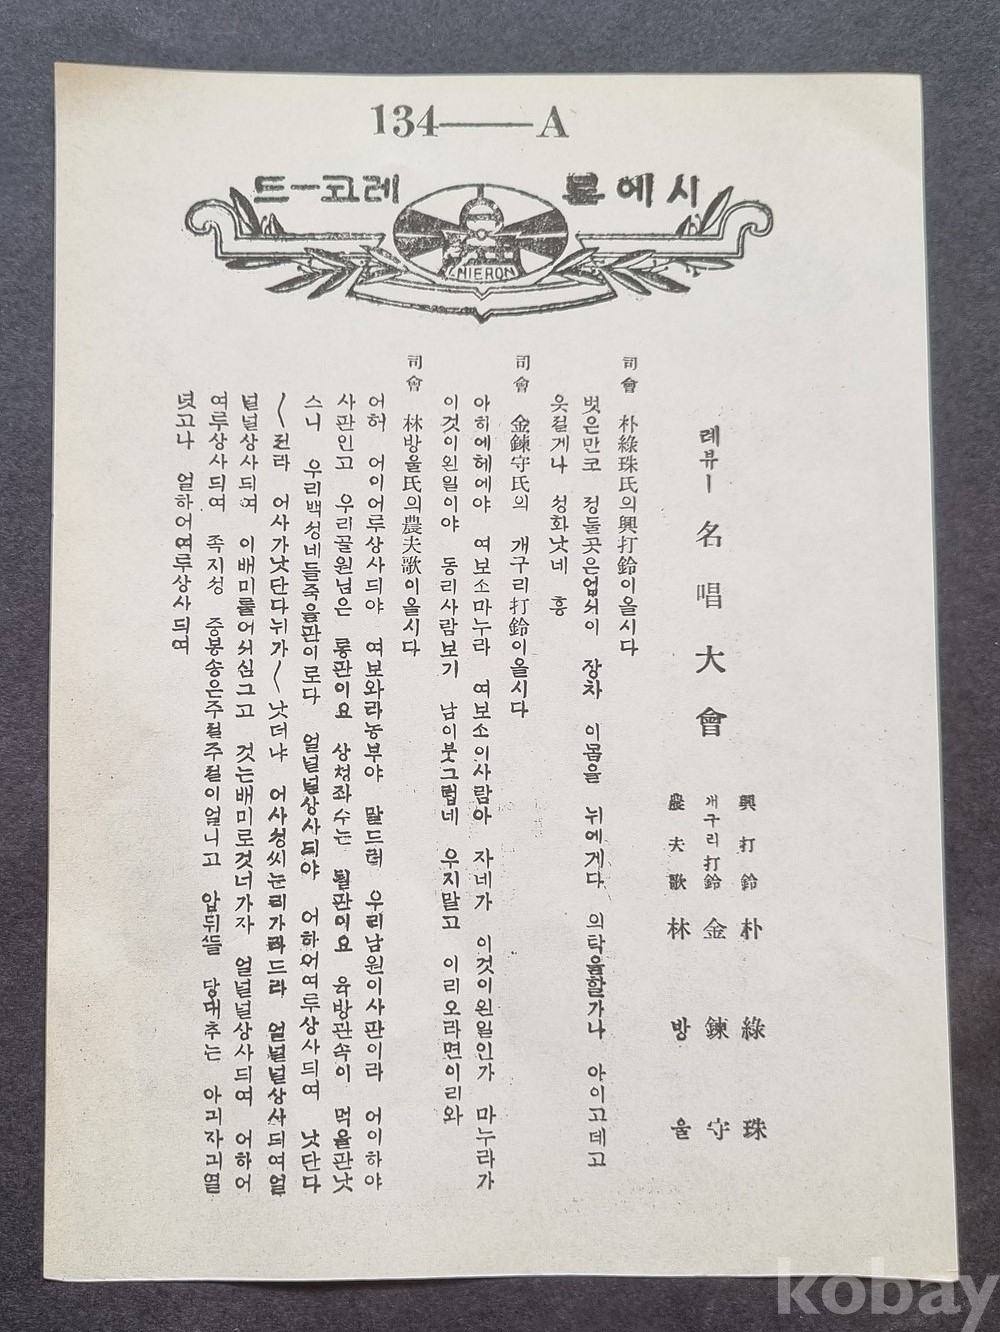 134——A
시에론 레코ー드
HIERON
레뷰ー 名唱大會
興打鈴 朴綠珠
개구리打鈴 金鍊守
農夫歌 林방울
司會 朴綠珠氏의興打鈴이올시다
벗은만코 정둘곳은업서이 장차 이몸을 뉘에게다 의탁을할가나 아이고데고
웃질게나 성화낫네 흥
司會 金鍊守氏의 개구리打鈴이올시다
아하에헤에야 여보소마누라 여보소이사람아 자네가 이것이왼일인가 마누라가
이것이왼일이야 동리사람보기 남이붓그럽네 우지말고 이리오라면이리와
司會 林방울氏의農夫歌이올시다
어허 어이어루상사듸야 여보와라농부야 말드러 우리남원이사판이라 어이하야
사판인고 우리골원님은 롱판이요 상청좌수는 퇼판이요 육방관속이 먹을판낫
스니 우리백성네들죽을판이로다 얼널널상사듸야 어하어여루상사듸여 낫단다
〱전라 어사가낫단다뉘가〱낫더냐 어사성씨는리가라드라 얼널널상사듸여얼
널널상사듸여 이배미를어서심그고 것는배미로것너가자 얼널널상사듸여 어하어
여루상사듸여 족지청 중봉송은주절주절이열니고 압뒤뜰 당대추는 아긔자긔열
녓고나 얼하어여루상사듸여
kobay